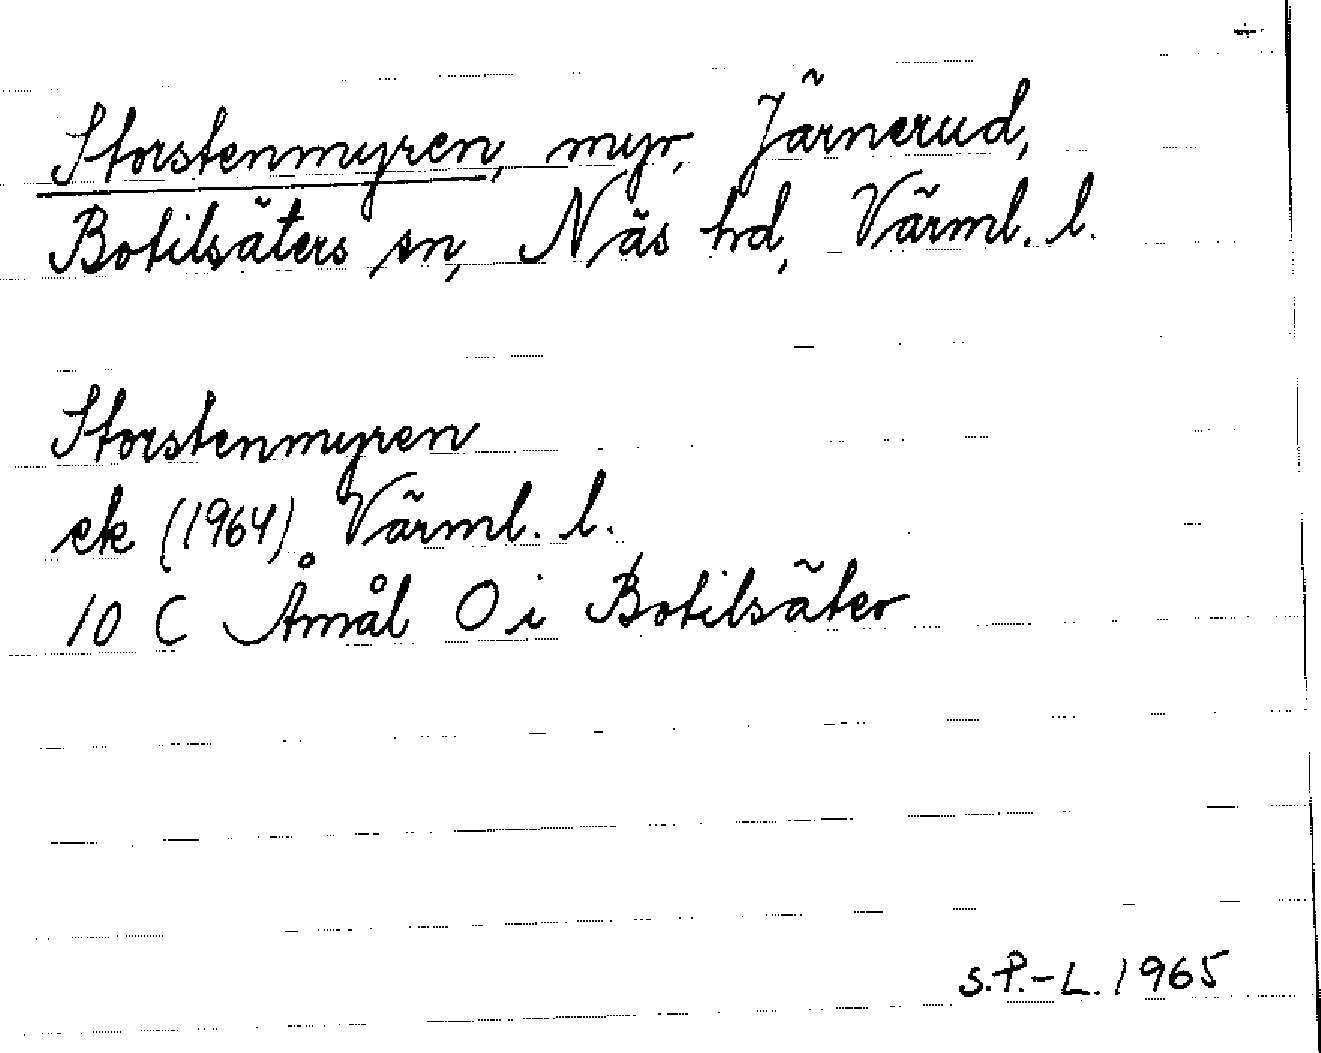 Storstenmyren, myr, Järnerud,
Botilsäters sn, Näs hd, Värml. l.
Storstenmyren
ek (1964) Värml. l.
10 C Åmål O i Botilsäter
S.P.-L. 1965